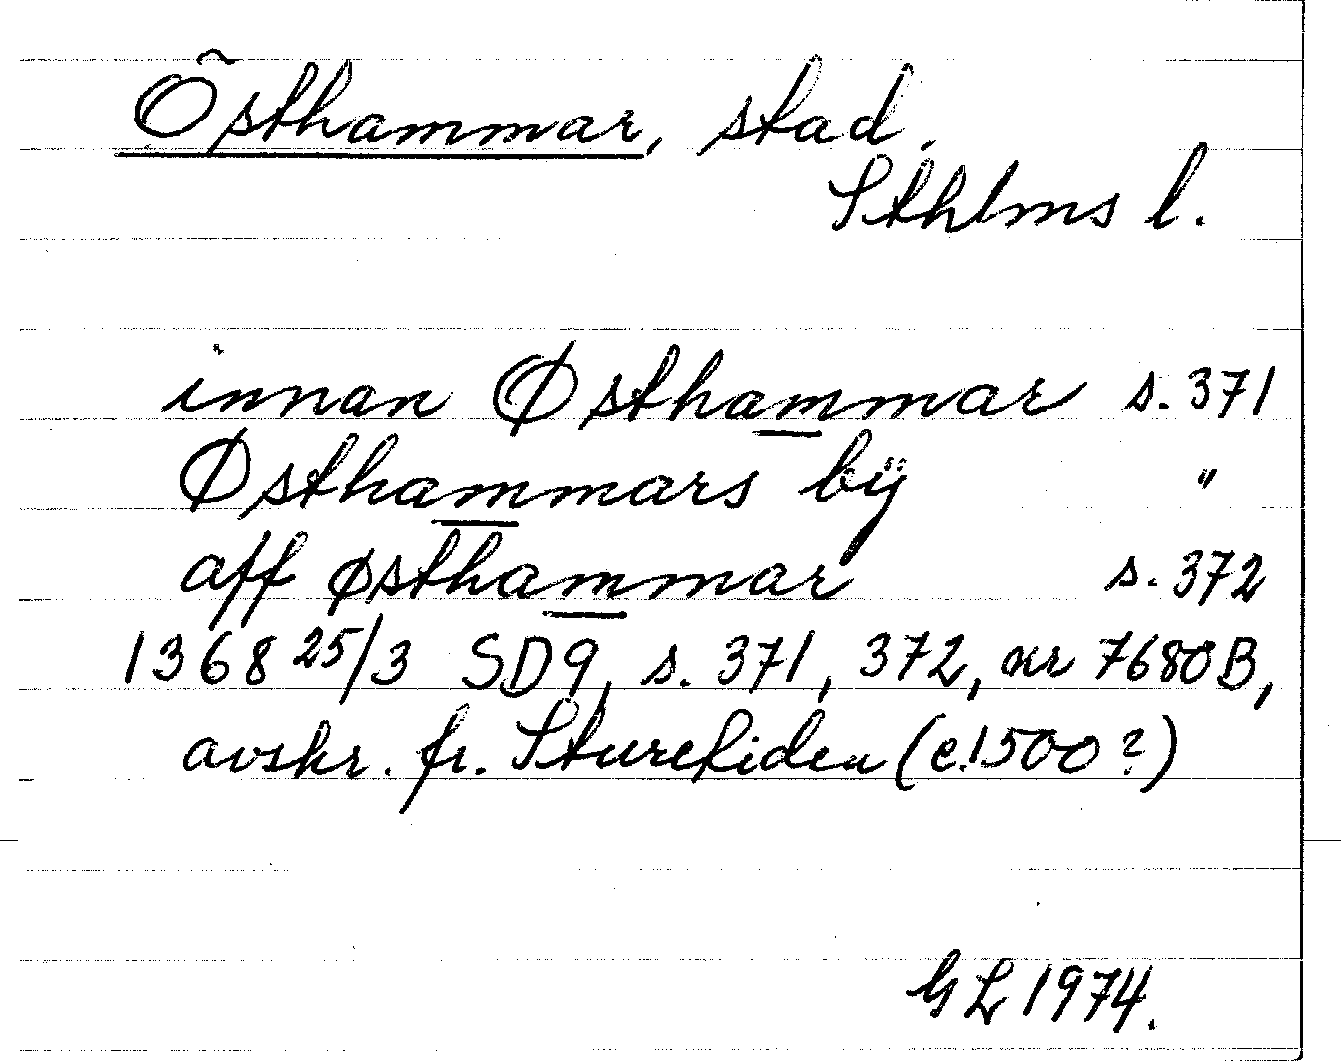 Östhammar, stad.
Sthlms l.
innan Østhammar s. 371
Østhammars bÿ "
aff østhammar s. 372
1368 25/3 SD9, s. 371, 372, nr 7680B,
avskr. fr. Sturetiden (c. 1500?)
GL 1974.